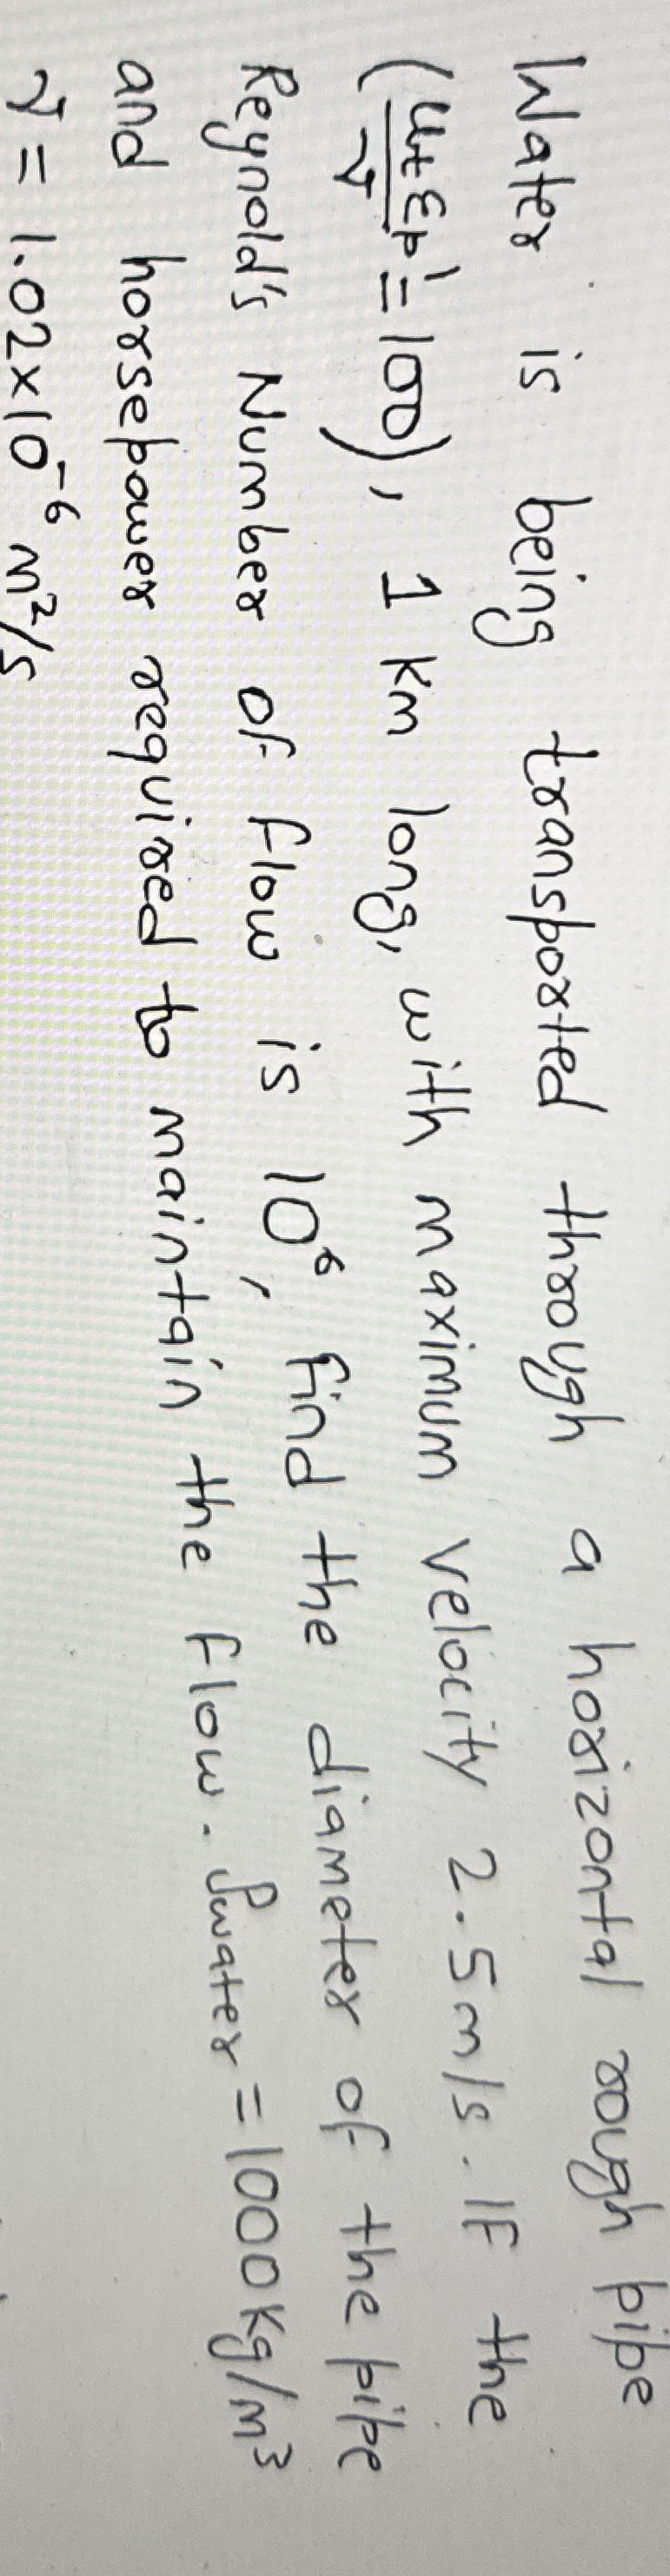 Water is being transported through a horizontal rough pipe
(u_t ε_p / ν = 100), 1 km long, with maximum velocity 2.5m/s. IF the
Reynold's Number of flow is 10⁶, find the diameter of the pipe
and horsepower required to maintain the flow. ρwater = 1000kg/m³
ν = 1.02×10⁻⁶ m²/s